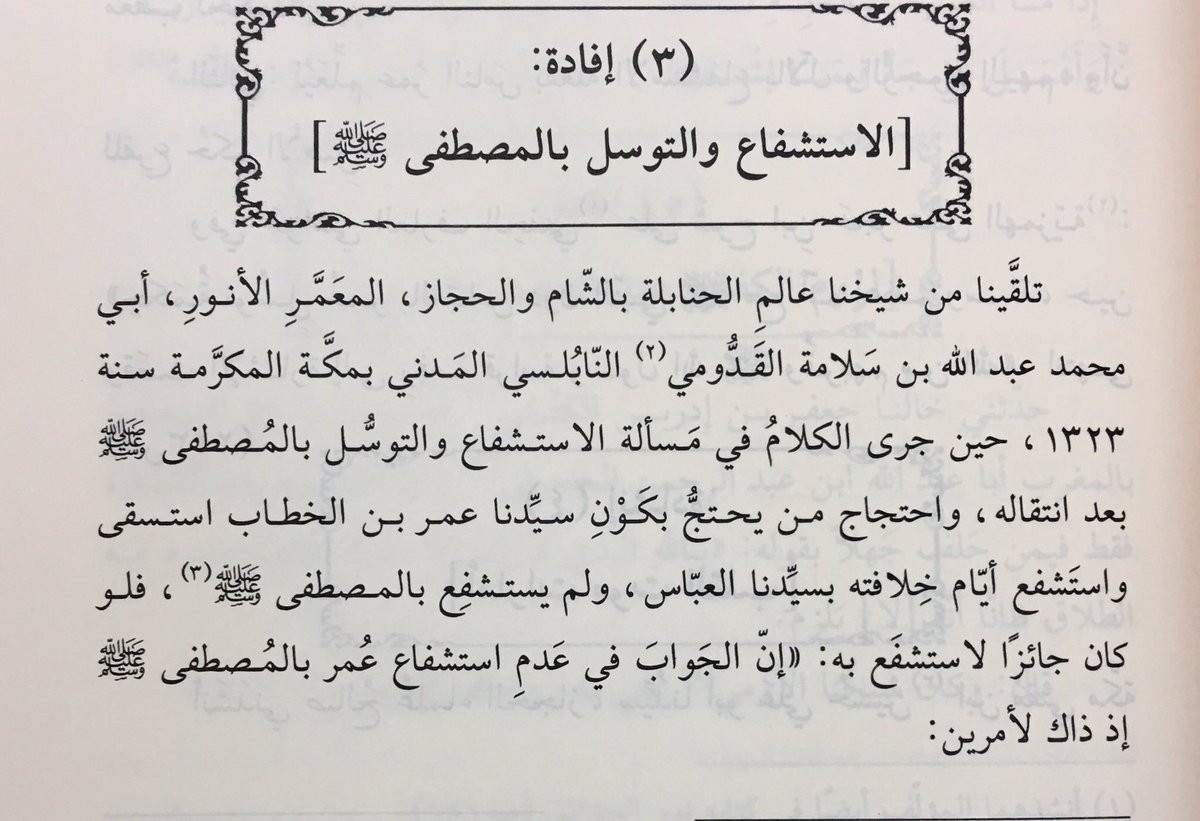 (٣) إفادة:
[الاستشفاع والتوسل بالمصطفى ﷺ]
تلقَّينا من شيخنا عالمِ الحنابلة بالشّام والحجاز، المعَمَّرِ الأنورِ، أبي
محمد عبد الله بن سَلامة القَدُّومي(٢) النّابُلسي المَدني بمكَّة المكرَّمة سنة
١٣٢٣، حين جرى الكلامُ في مَسألة الاستشفاع والتوسُّل بالمُصطفى ﷺ
بعد انتقاله، واحتجاج من يحتجُّ بكَوْنِ سيِّدنا عمر بن الخطاب استسقى
واستَشفع أيّام خِلافته بسيِّدنا العبّاس، ولم يستشفِع بالمصطفى ﷺ(٣)، فلو
كان جائزًا لاستشفَع به: «إنّ الجَوابَ في عَدمِ استشفاع عُمر بالمُصطفى ﷺ
إذ ذاك لأمرين: